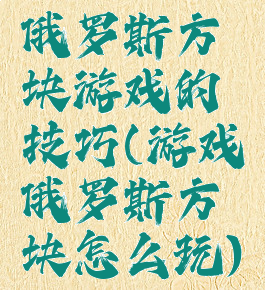 俄罗斯方
块游戏的
技巧(游戏
俄罗斯方
块怎么玩)